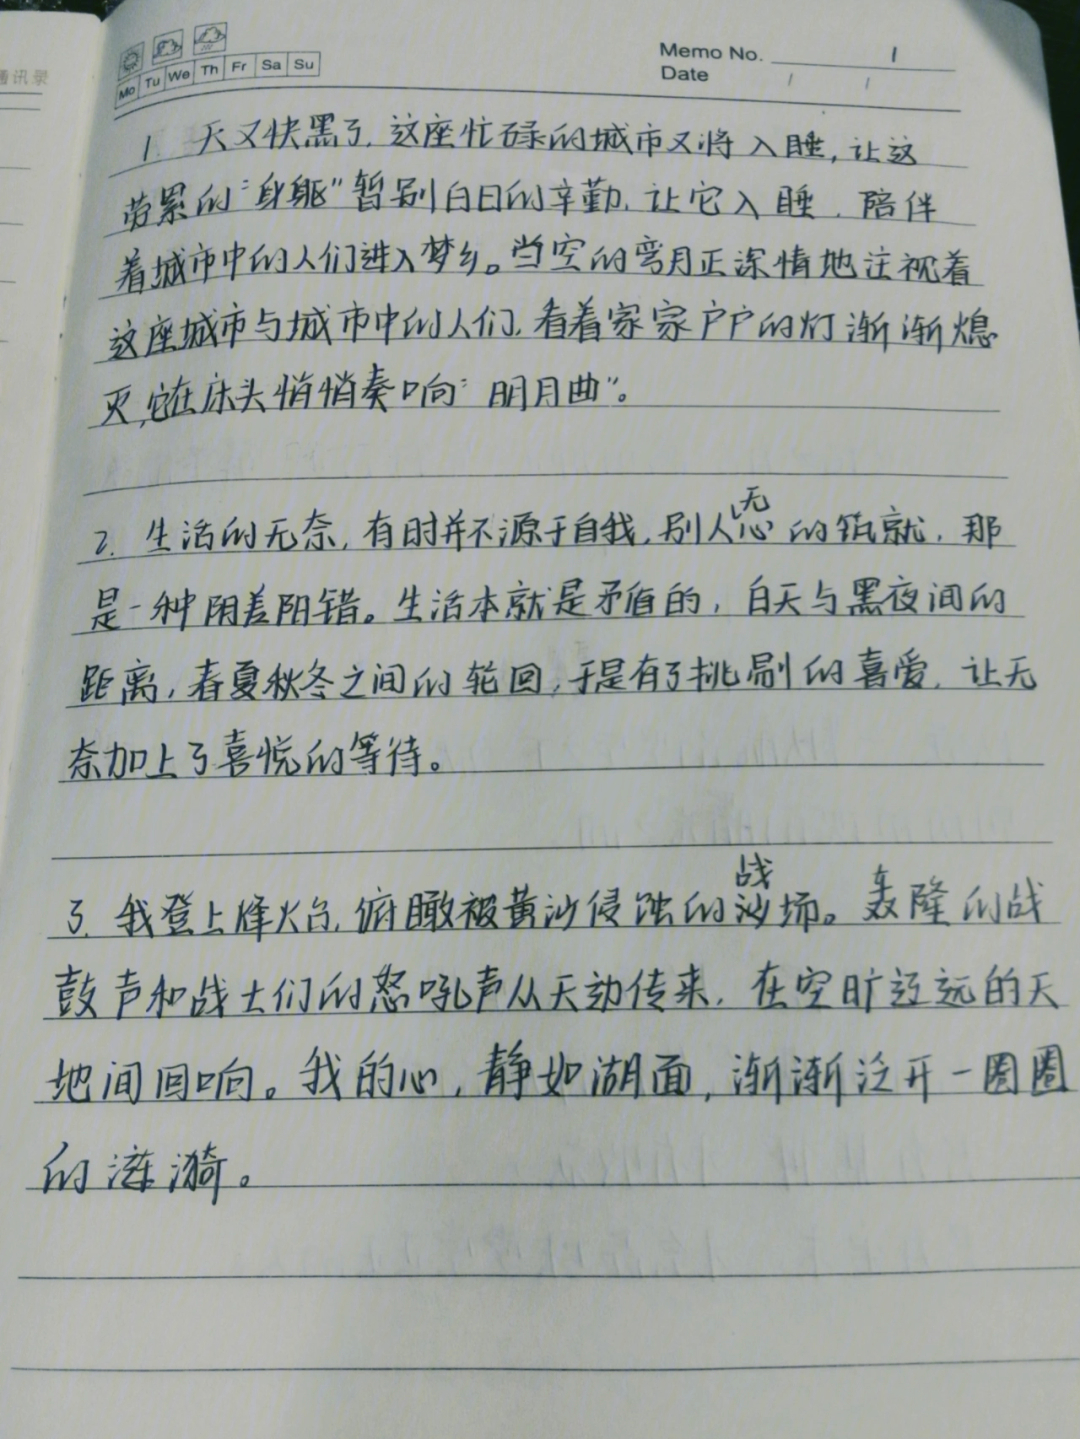 通讯录
Mo Tu We Th Fr Sa Su
Memo No. 1
Date / /
1. 天又快黑了,这座忙碌的城市又将入睡,让这
劳累的“身躯”暂别白日的辛勤,让它入睡,陪伴
着城市中的人们进入梦乡。当空的弯月正深情地注视着
这座城市与城市中的人们,看着家家户户的灯渐渐熄
灭,它在床头悄悄奏响“明月曲”。
2. 生活的无奈,有时并不源于自我,别人无心的筑就,那
是一种阴差阳错。生活本就是矛盾的,白天与黑夜间的
距离,春夏秋冬之间的轮回,于是有了挑剔的喜爱,让无
奈加上了喜悦的等待。
3. 我登上烽火台,俯瞰被黄沙侵蚀的战沙场。轰隆的战
鼓声和战士们的怒吼声从天边传来,在空旷辽远的天
地间回响。我的心,静如湖面,渐渐泛开一圈圈
的涟漪。